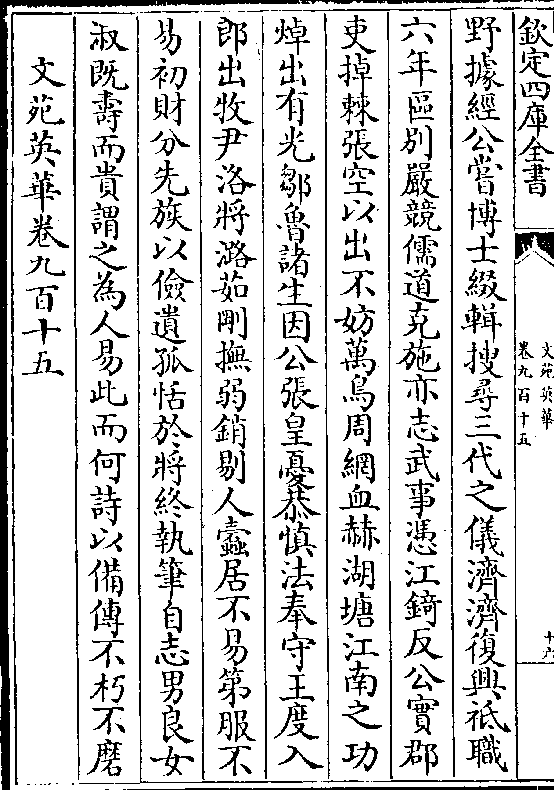 欽定四庫全書
文苑英華
卷九百十五
十六
野據經公嘗博士綴輯搜尋三代之儀濟濟復興祗職
六年區別嚴競儒道克施亦志武事憑江錡反公實郡
吏掉棘張空以出不妨萬鳥周網血赫湖塘江南之功
焯出有光鄒魯諸生因公張皇憂恭慎法奉守王度入
郎出牧尹洛將潞茹剛撫弱銷剔人蠹居不易第服不
易初財分先族以儉遺孤恬於將終執筆自志男良女
淑既壽而貴謂之為人易此而何詩以備傳不朽不磨
文苑英華卷九百十五